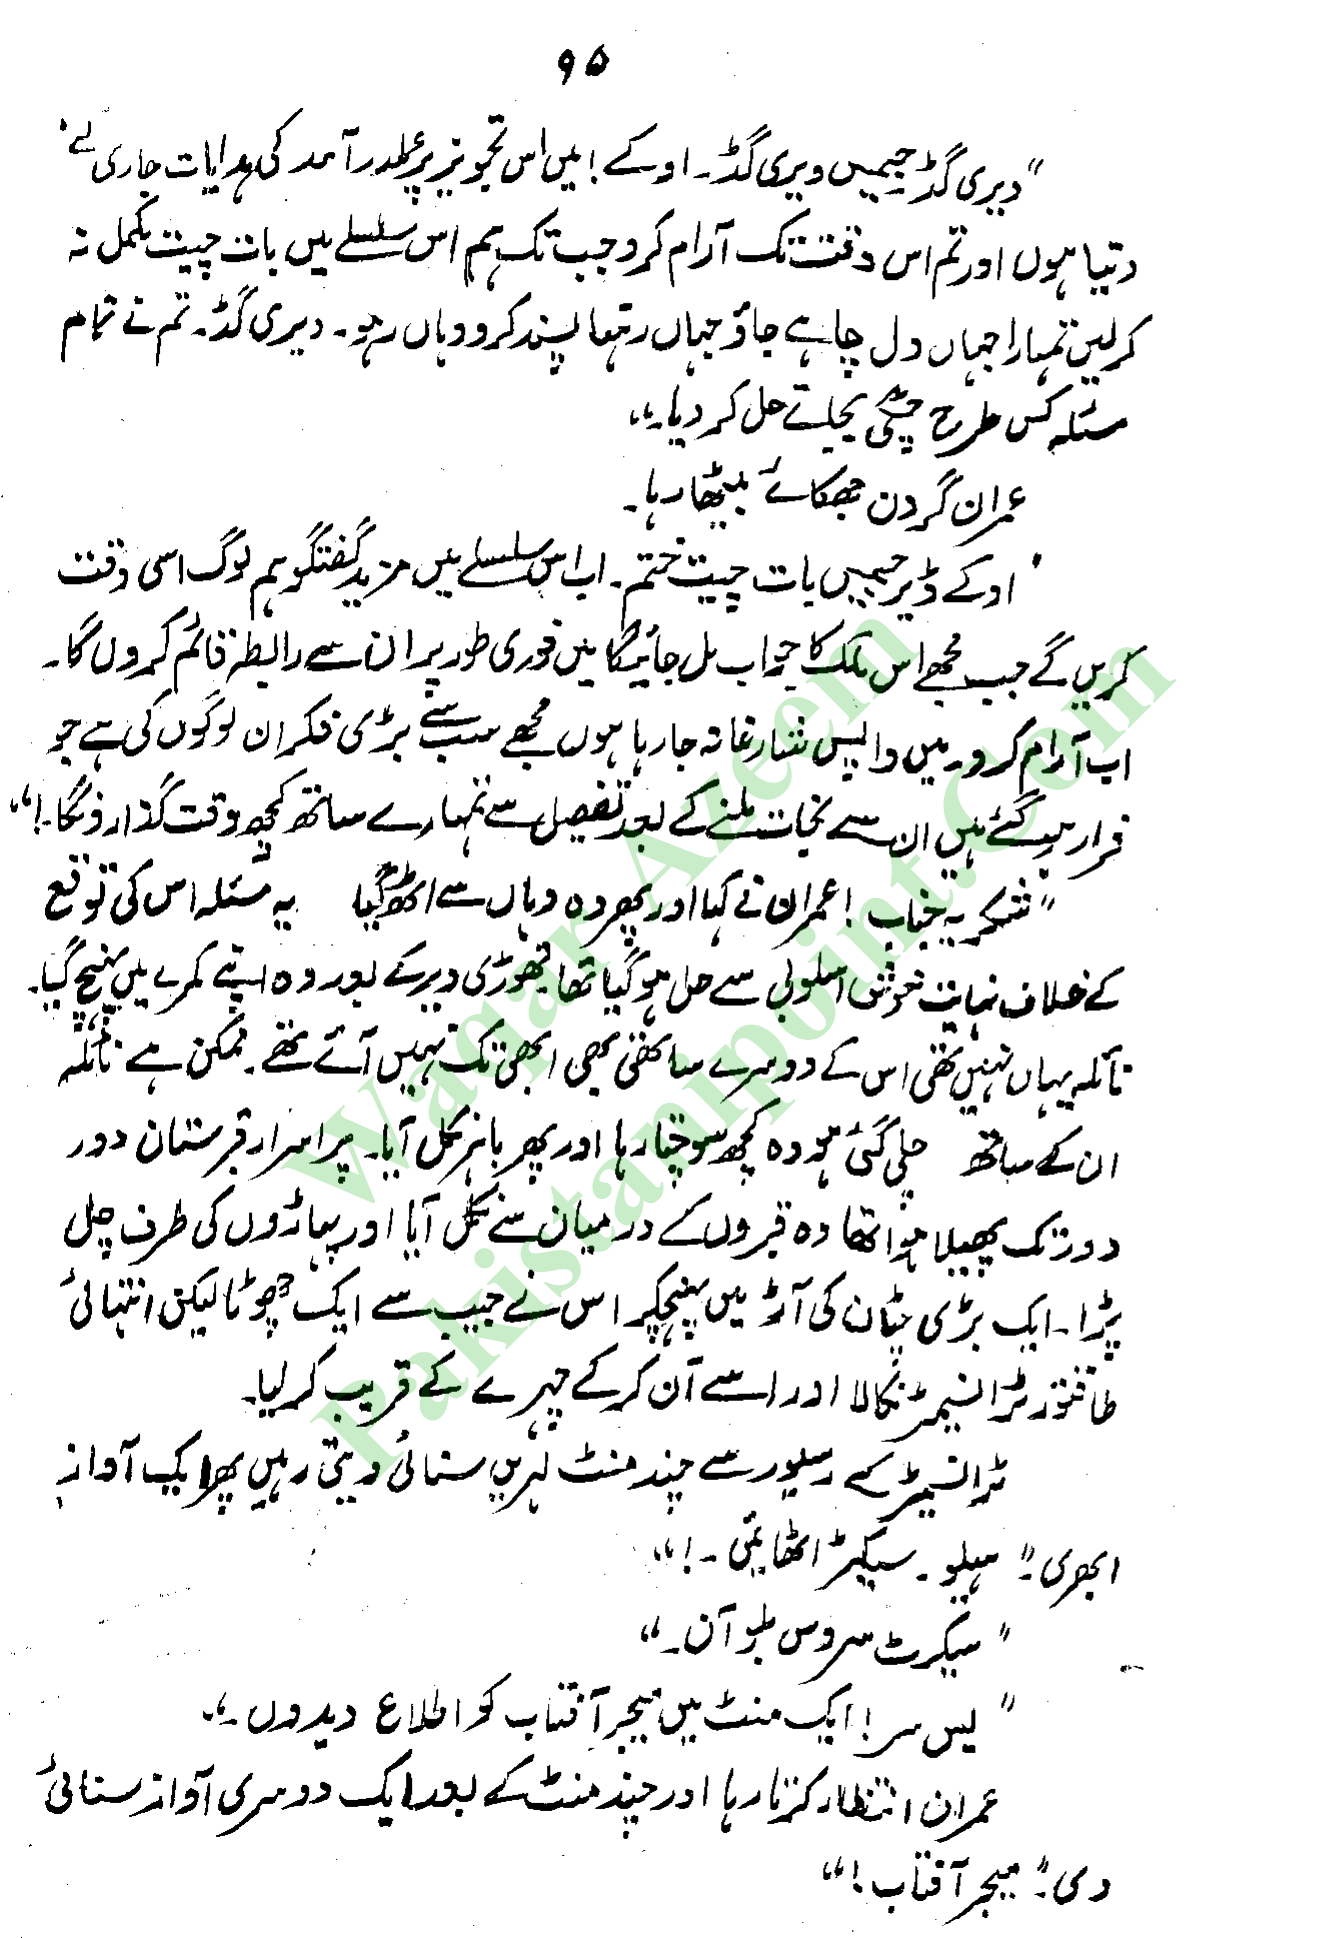 ۹۵
"ویری گڈ جیمیں ویری گڈ۔ اوکے! میں اس تجویز پر عملدرآمد کی ہدایات جاری کئے
دیتا ہوں اور تم اس وقت تک آرام کرو جب تک ہم اس سلسلے میں بات چیت مکمل نہ
کرلیں تمہارا جہاں دل چاہے جاؤ جہاں رہنا پسند کرو وہاں رہو۔ ویری گڈ۔ تم نے تمام
مسئلہ کس طرح چٹکی بجاتے حل کر دیا۔"
عمران گردن جھکائے بیٹھا رہا۔
"اوکے ڈیر جیمیں بات چیت ختم۔ اب اس سلسلے میں مزید گفتگو ہم لوگ اسی وقت
کریں گے جب مجھے اس ملک کا جواب مل جائیگا میں فوری طور پر ان سے رابطہ قائم کروں گا۔
اب آرام کرو۔ میں واپس شارغانہ جارہا ہوں مجھے سب سے بڑی فکر ان لوگوں کی ہے جو
فرار ہوگئے ہیں ان سے نجات ملنے کے بعد تفصیل سے تمہارے ساتھ کچھ وقت گذاروں گا۔!"
"شکریہ جناب! عمران نے کہا اور پھر وہ وہاں سے اٹھ گیا یہ مسئلہ اس کی توقع
کے خلاف نہایت خوش اسلوبی سے حل ہوگیا تھا تھوڑی دیر کے بعد وہ اپنے کمرے میں پہنچ گیا۔
نائلہ یہاں نہیں تھی اس کے دوسرے ساتھی بھی ابھی تک نہیں آئے تھے۔ ممکن ہے نائلہ
ان کے ساتھ چلی گئی ہو وہ کچھ سوچتا رہا اور پھر باہر نکل آیا۔ پراسرار قبرستان دور
دور تک پھیلا ہوا تھا وہ قبروں کے درمیان سے نکل آیا اور پہاڑوں کی طرف چل
پڑا۔ ایک بڑی چٹان کی آڑ میں پہنچکر اس نے جیب سے ایک چھوٹا لیکن انتہائی
طاقتور ٹرانسمیٹر نکالا اور اسے آن کرکے چہرے کے قریب کرلیا۔
ٹرانسمیٹر کے رسیور سے چند منٹ لہریں سنائی دیتی رہیں پھر ایک آواز
ابھری۔" ہیلو۔ سیکرٹ اٹھائیں۔!"
"سیکرٹ سروس بلو آن۔"
"یس سر! ایک منٹ میں میجر آفتاب کو اطلاع دیدوں۔"
عمران انتظار کرتا رہا اور چند منٹ کے بعد ایک دوسری آواز سنائی
دی۔" میجر آفتاب!"
Waqar Azeem
Pakistanipoint.Com